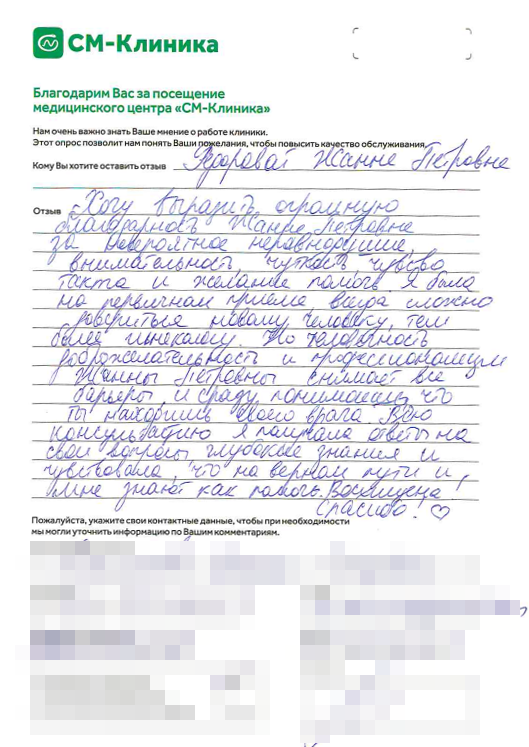 СМ-Клиника
Благодарим Вас за посещение
медицинского центра «СМ-Клиника»
Нам очень важно знать Ваше мнение о работе клиники.
Этот опрос позволит нам понять Ваши пожелания, чтобы повысить качество обслуживания.
Кому Вы хотите оставить отзыв Жанне Петровне
Отзыв Хочу выразить огромную
благодарность Жанне Петровне
за невероятное неравнодушие,
внимательность, чуткость, чувство
такта и желание помочь. Я была
на первичном приеме, всегда сложно
довериться новому человеку, тем
более гинекологу. Но человечность
доброжелательность и профессионализм
Жанны Петровны снимает все
барьеры и сразу понимаешь, что
ты находишь своего врача. Всю
консультацию я получала ответы на
свои вопросы, глубокие знания и
чувствовала, что на верном пути и
мне знают как помочь. Восхищена!
Спасибо! ♡
Пожалуйста, укажите свои контактные данные, чтобы при необходимости
мы могли уточнить информацию по Вашим комментариям.